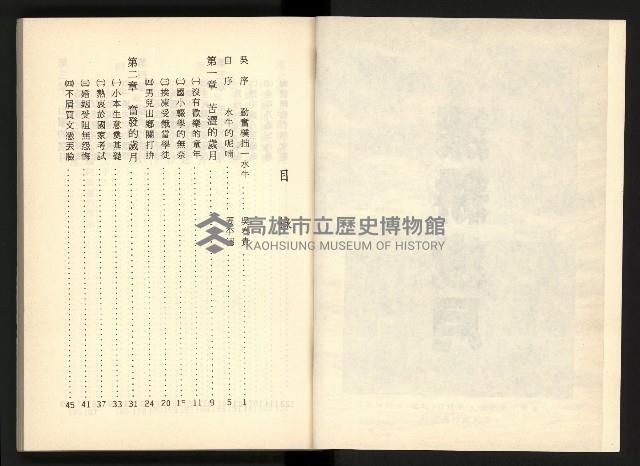 目錄
吳序 勤奮樸拙一水牛 吳 貴 1
自序 水牛的呢喃 5
第一章 苦澀的歲月 9
㈠沒有歡樂的童年 11
㈡國小輟學的無奈 15
㈢挨凍受餓當學徒 20
㈣男兒出鄉關打拚 24
第二章 奮發的歲月 31
㈠小本生意奠基礎 33
㈡熱衷於國家考試 37
㈢婚姻受阻無怨悔 41
㈣不屑買文憑丟臉 45
高雄市立歷史博物館
KAOHSIUNG MUSEUM OF HISTORY